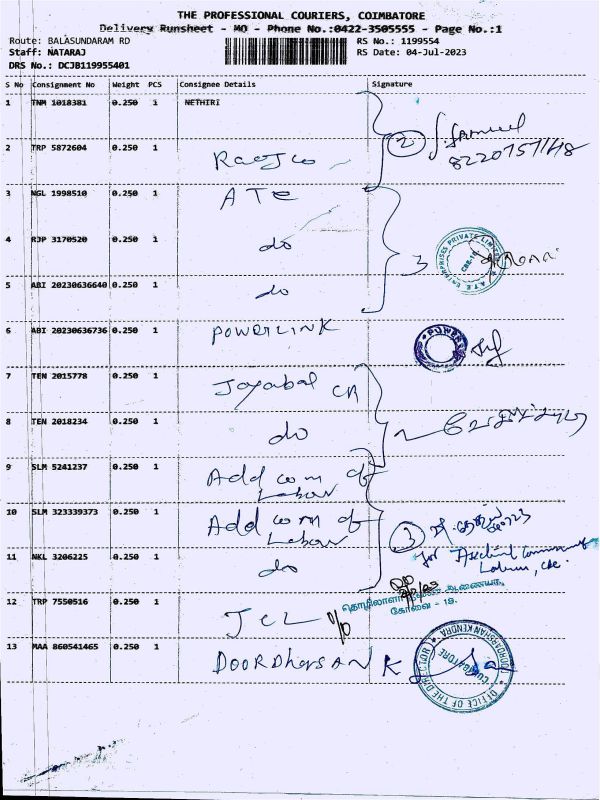 THE PROFESSIONAL COURIERS, COIMBATORE
Delivery Runsheet - MO - Phone No.:0422-3505555 - Page No.:1
Route: BALASUNDARAM RD
RS No.: 1199554
Staff: NATARAJ
RS Date: 04-Jul-2023
DRS No.: DCJB119955401
S No Consignment No Weight PCS Consignee Details Signature
1 TNM 1018381 0.250 1 NETHIRI
2 TRP 5872604 0.250 1
2
3 NGL 1998510 0.250 1 ATE
4 RJP 3170520 0.250 1 do
3
5 ABI 20230636640 0.250 1 do
6 ABI 20230636736 0.250 1 POWERLINK
7 TEN 2015778 0.250 1 Jayabal CR
8 TEN 2018234 0.250 1 do
9 SLM 5241237 0.250 1 Add com of Labour
10 SLM 323339373 0.250 1 Add com of Labour
3
11 NKL 3206225 0.250 1 do
for Assistant Commissioner of
Labour, cbe.
12 TRP 7550516 0.250 1 JCL
கோவை - 18.
13 MAA 860541465 0.250 1 DOORDHARSAN K
OFFICE OF THE DIRECTOR DOORDARSHAN KENDRA
COIMBATORE